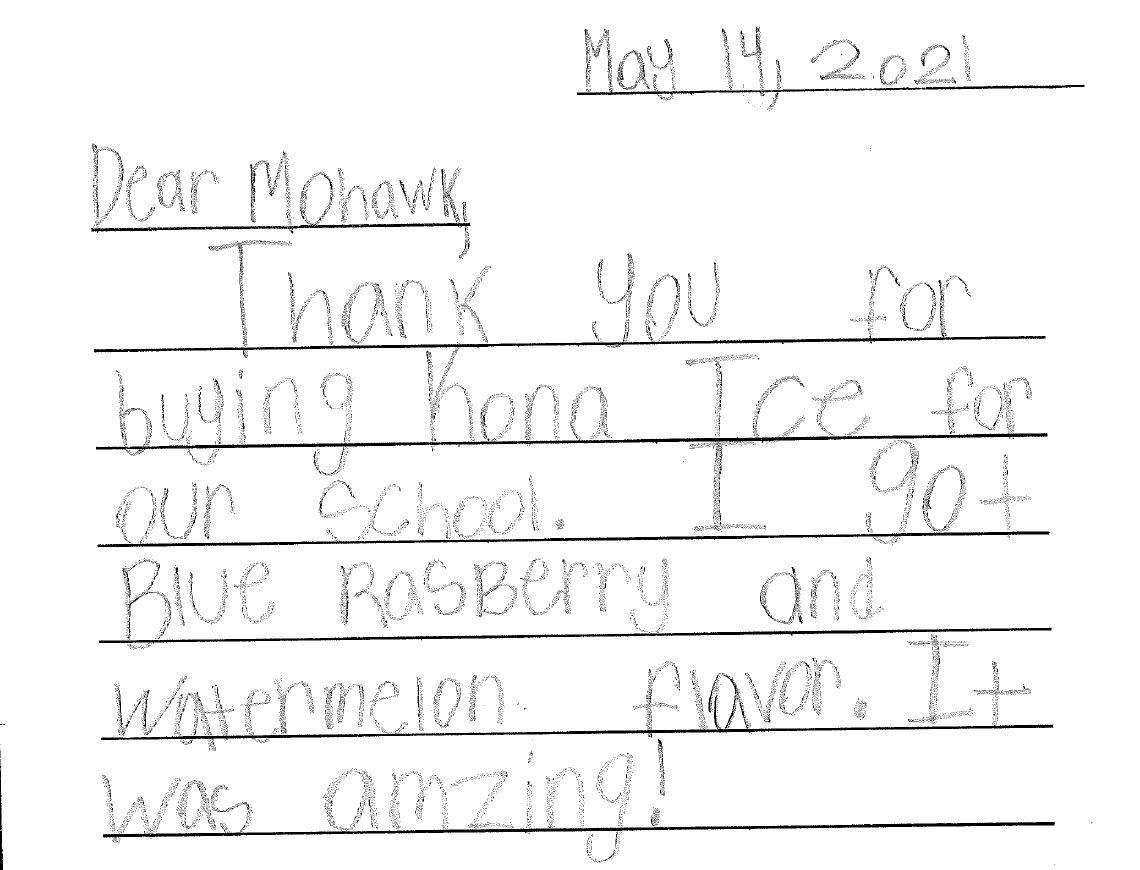 May 14, 2021
Dear Mohawk,
Thank you for
buying Kona Ice for
our school. I got
Blue RasBerry and
watermelon flavor. It
was amzing!